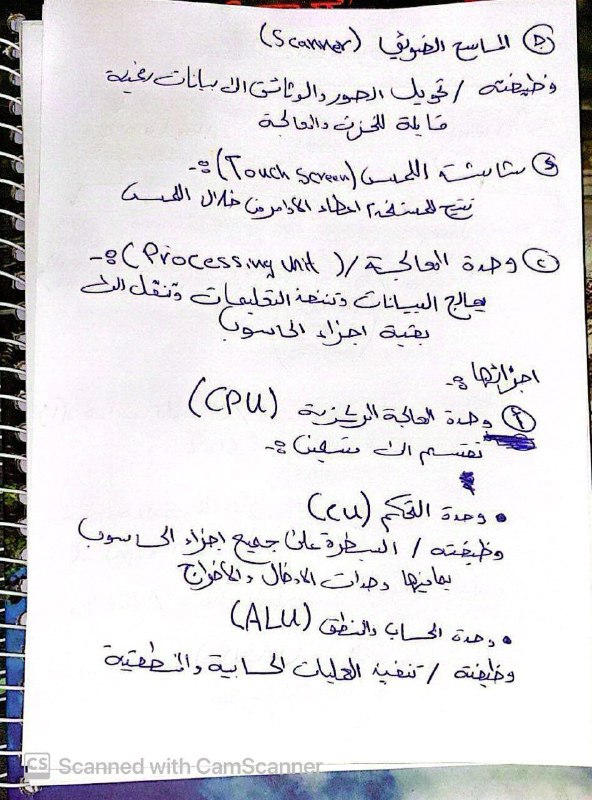 (D) الماسح الضوئي (Scanner)
وظيفته / تحويل الصور والوثائق الى بيانات رقمية
قابلة للخزن والمعالجة
شاشة اللمس (Touch Screen) :-
تتيح للمستخدم اعطاء الاوامر من خلال اللمس
(C) وحدة المعالجة / (Processing unit) :-
يعالج البيانات وتنفذ التعليمات وتنقل الى
بقية اجزاء الحاسوب
اجزائها :-
(أ) وحدة المعالجة المركزية (CPU)
تقسم الى قسمين :-
• وحدة التحكم (CU)
وظيفته / السيطرة على جميع اجزاء الحاسوب
بمافيها وحدات الادخال والاخراج
• وحدة الحساب والمنطق (ALU)
وظيفته / تنفيذ العمليات الحسابية والمنطقية
CS Scanned with CamScanner